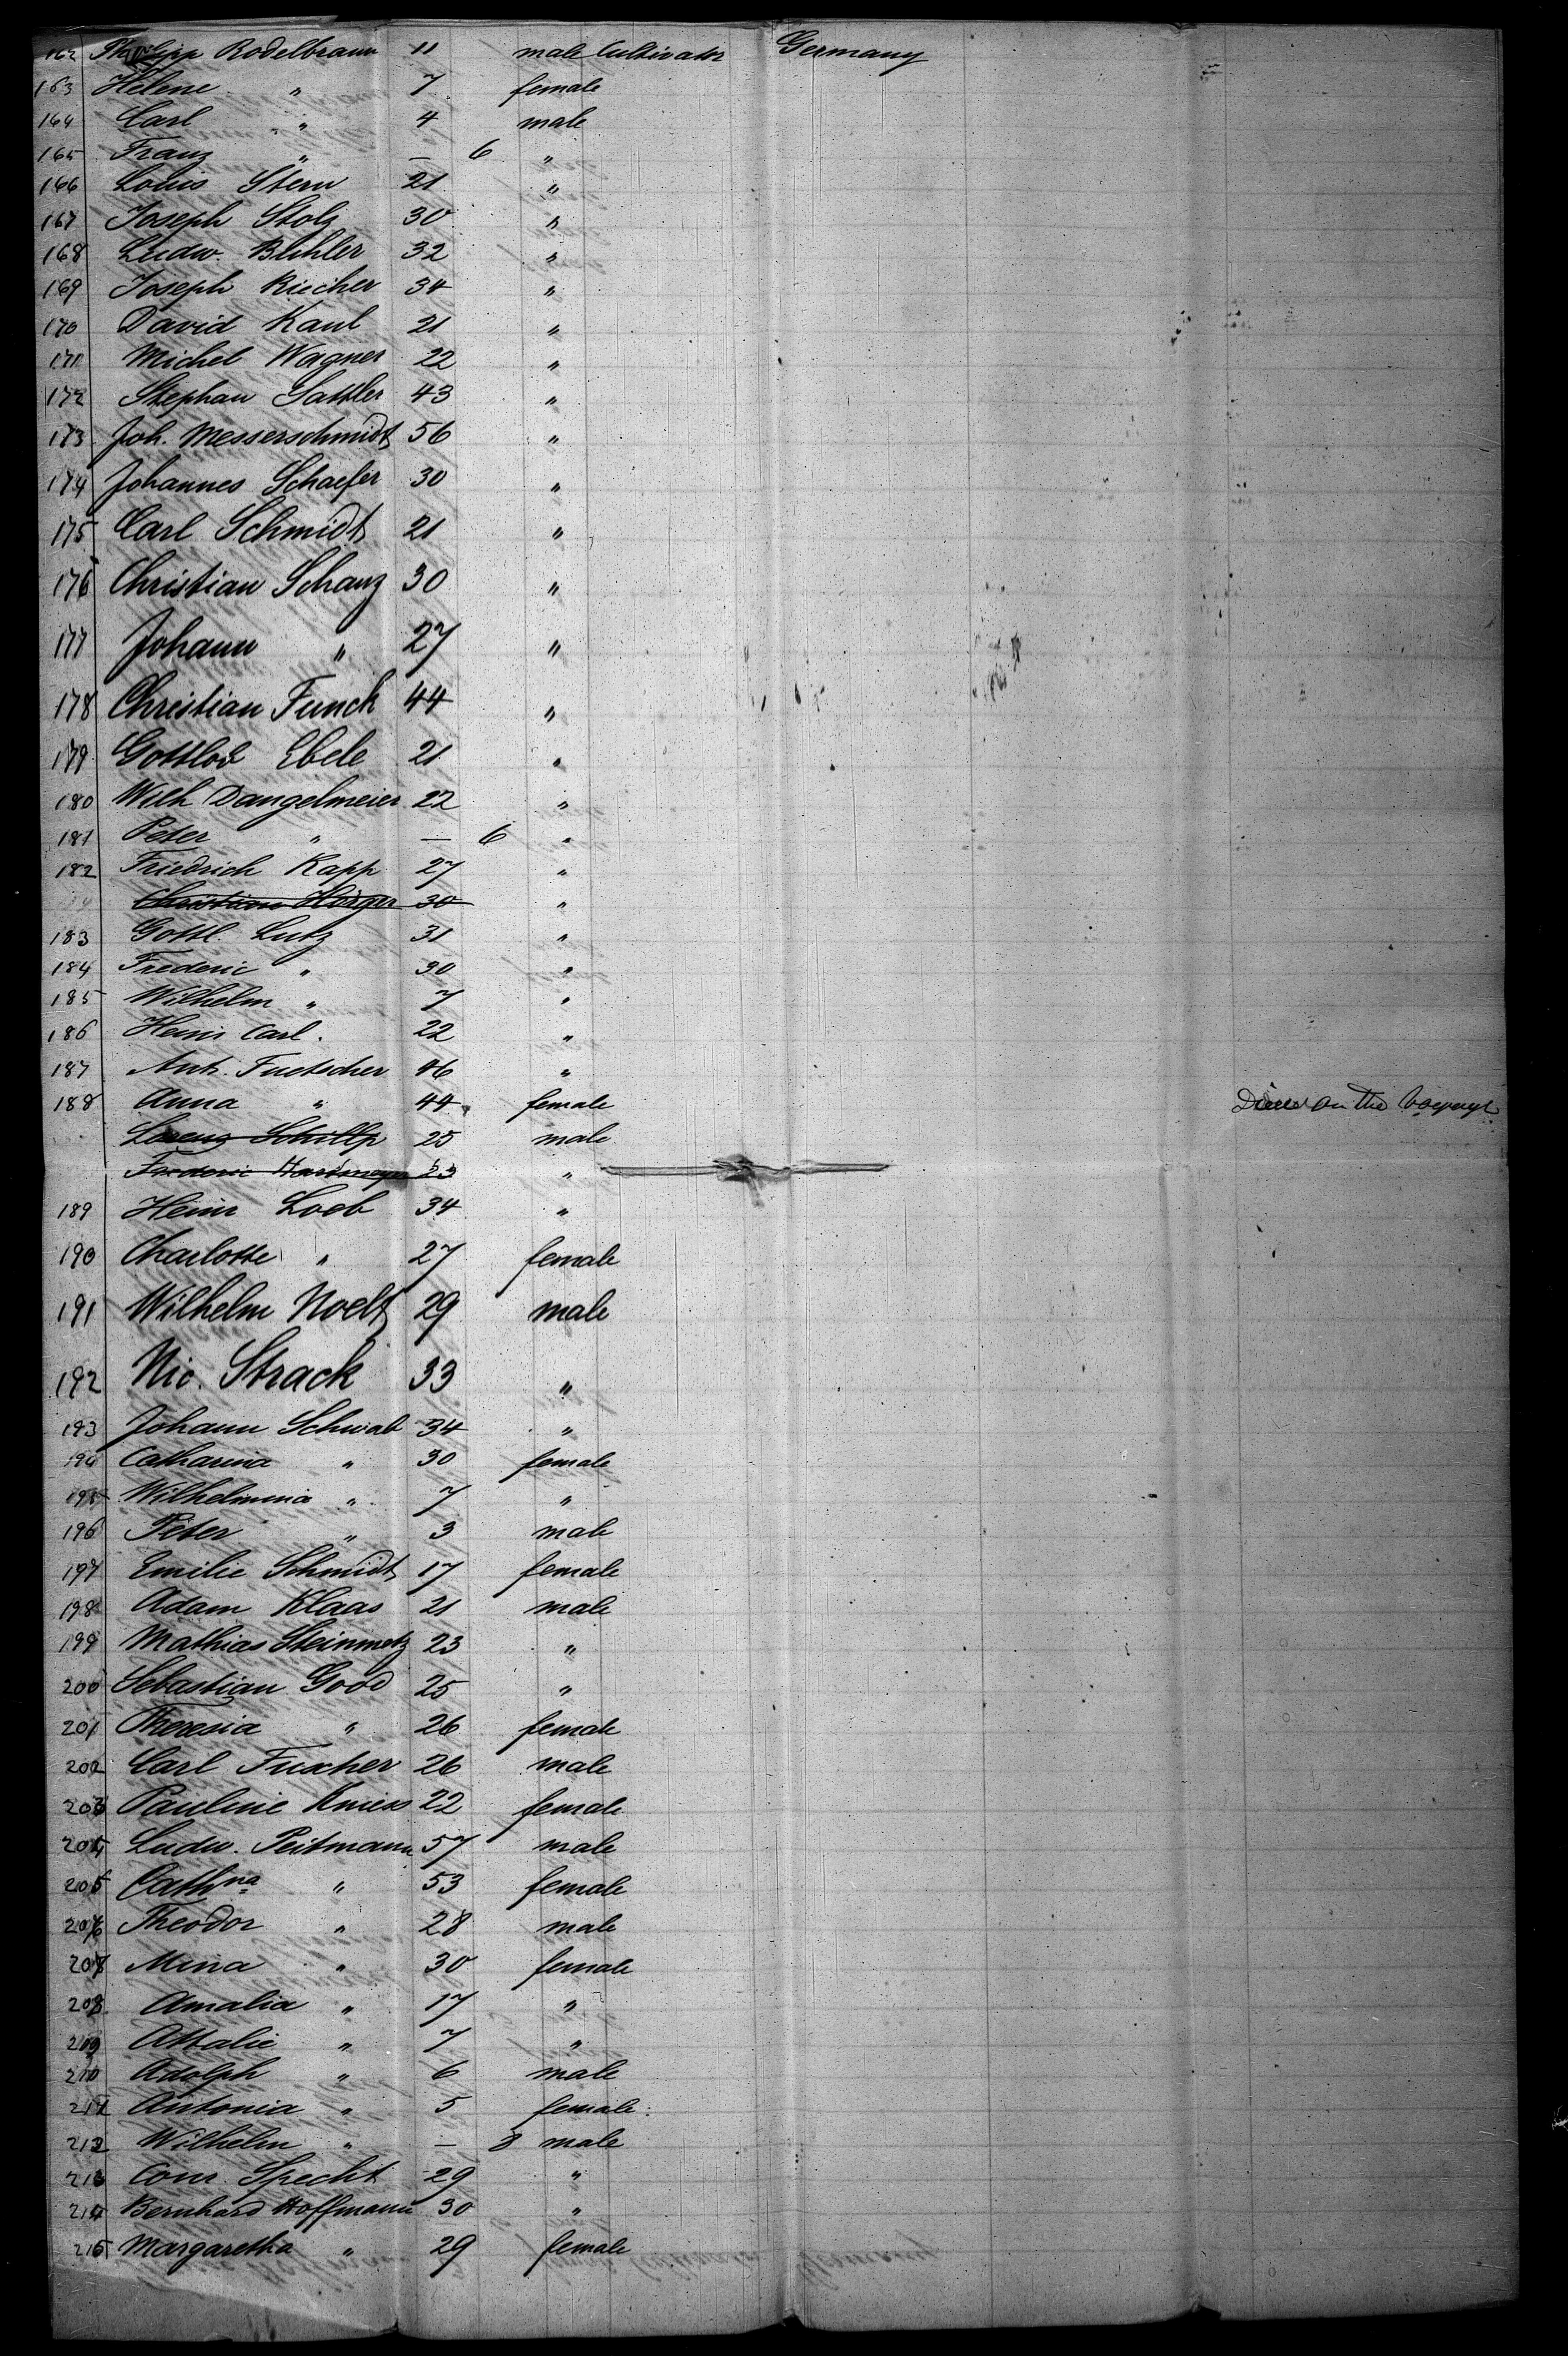 162 Philipp Rodelbraun 11 male Cultivator Germany
163 Helene " 7 female
164 Carl " 4 male
165 Franz " — 6 "
166 Louis Stern 21 "
167 Joseph Stolz 30 "
168 Ludw. Buhler 32 "
169 Joseph Riecher 34 "
170 David Kaul 21 "
171 Michel Wagner 22 "
172 Stephan Sattler 43 "
173 Joh. Messerschmidt 56 "
174 Johannes Schaefer 30 "
175 Carl Schmidt 21 "
176 Christian Schanz 30 "
177 Johann " 27 "
178 Christian Funck 44 "
179 Gottlob Ebele 21 "
180 Wilh Dangelmeier 22 "
181 Peter " — 6 "
182 Friedrich Kapp 27 "
Christian Hörger 30 "
183 Gottl. Lutz 31 "
184 Frederic " 30 "
185 Wilhelm " 7 "
186 Heinr Carl. 22 "
187 Ant. Fuetscher 46 "
188 Anna " 44 female Died on the voyage
Lorenz 25 male
Frederic 23 "
189 Heinr Loeb 34 "
190 Charlotte " 27 female
191 Wilhelm Noelt 29 male
192 Nic. Strack 33 "
193 Johann Schwab 34 "
194 Catharina " 30 female
195 Wilhelmina " 7 "
196 Peter " 3 male
197 Emilie Schmidt 17 female
198 Adam Klaas 21 male
199 Mathias Steinmetz 23 "
200 Sebastian Good 25 "
201 Theresia " 26 female
202 Carl Fuscher 26 male
203 Pauline Kniess 22 female
204 Ludw. Peitmann 57 male
205 Cathna " 53 female
206 Theodor " 28 male
207 Mina " 30 female
208 Amalia " 17 "
209 Attalie " 7 "
210 Adolph " 6 male
211 Antonia " 5 female
212 Wilhelm " — 8 male
213 Conr. Specht 29 "
214 Bernhard Hoffmann 30 "
215 Margaretha " 29 female